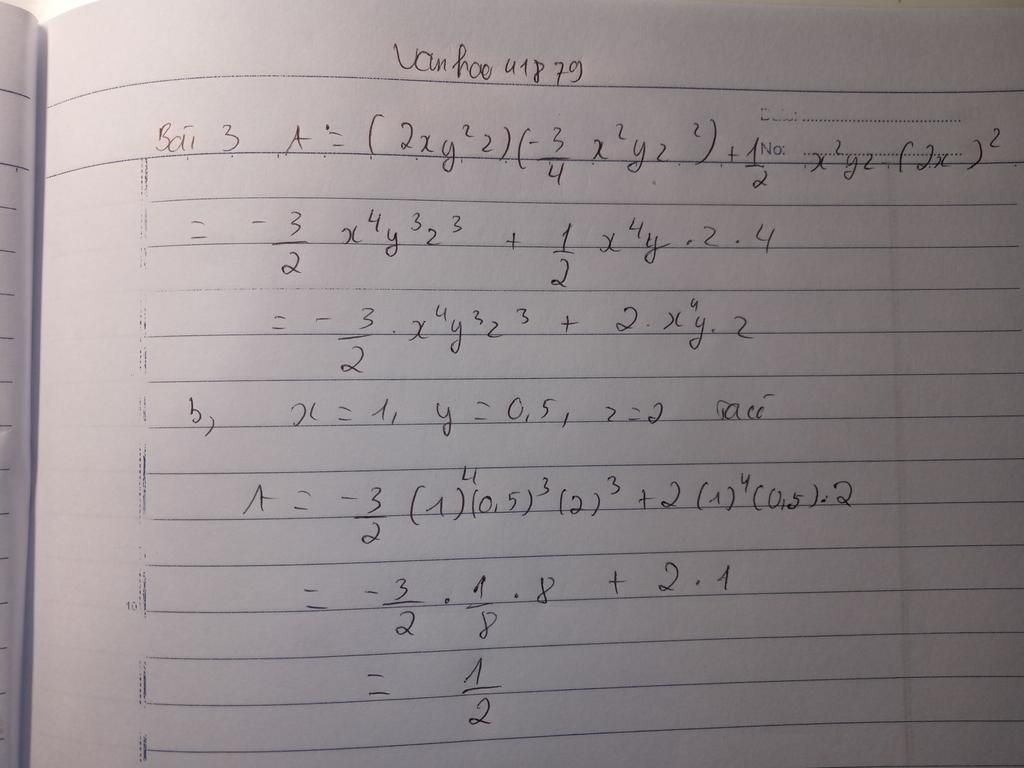 Vanhoo41879
Bài 3 A = (2xy²z)(-3/4 x²yz²) + 1/2 x²yz (2x)²
No:
= -3/2 x⁴y³z³ + 1/2 x⁴y.z.4
= -3/2 . x⁴y³z³ + 2.x⁴y.z
b, x = 1, y = 0,5, z = 2 ta có
A = -3/2 (1)⁴(0,5)³(2)³ + 2(1)⁴(0,5).2
= -3/2 . 1/8 . 8 + 2.1
10
= 1/2